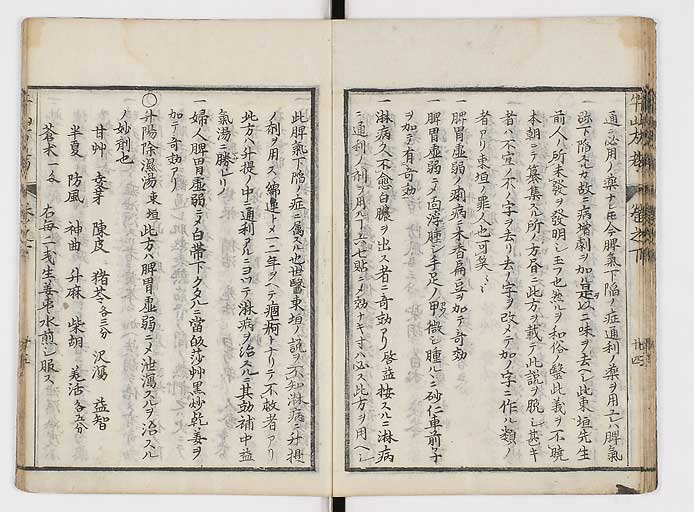 通ニ必用ノ薬ナレ𪜈今脾氣下陷ノ症通利ノ薬ヲ用エハ脾氣
弥下陷スルカ故ニ病增劇ヲ加ヨ是以二味ヲ去ヘシ此東垣先生
前人ノ所未發ヲ發明シ玉フ也然ルヲ和俗ノ醫此義ヲ不曉
本朝ニテ纂集スル所ノ方書ニ此方ヲ載テ此說ヲ脫シ甚キ
者ハ不宜ノ不ノ字ヲ去リ去ノ字ヲ改メテ加ノ字ニ作ル類ノ
者アリ東垣ノ罪人也可矣
一 脾胃虛弱ノ痢病ニ木香扁豆ヲ加テ奇効
一 脾胃虛弱ニメ面浮腫シ手足ノ甲微シ腫ルニ砂仁車前子
ヲ加テ有奇効
一 淋病久不愈白膿ヲ出ス者ニ奇効アリ啓益按スルニ淋病
ニ通利ノ剤ヲ用ル丁五七貼ニメ効ナキ寸ハ必ス此方ヲ用ヘシ
牛山方考 卷之下
廿四
一 此脾氣下陷ノ症ニ属スル也世醫東垣ノ說ヲ不知淋病ニ升提
ノ剤ヲ用ス綿連トメ一二年ヲヘテ痼疴トナリテ不救者アリ
此方ハ升提ノ中ニ通利アルニヨツテ淋病ヲ治スルニ其効補中益
氣湯ニ勝レリ
一 婦人脾胃虛弱ニメ白帯下クタルニ當皈莎艸黒炒乾姜ヲ
加テ奇効アリ
○升陽除濕湯東垣此方ハ脾胃虛弱ニメ泄瀉スルヲ治スル
ノ妙剤也
甘艸 麦芽 陳皮 猪苓各三分 沢瀉 益智
半夏 防風 神曲 升麻 柴胡 羗活各五分
蒼术一戔 右毎二戔生姜枣水煎シ服ス